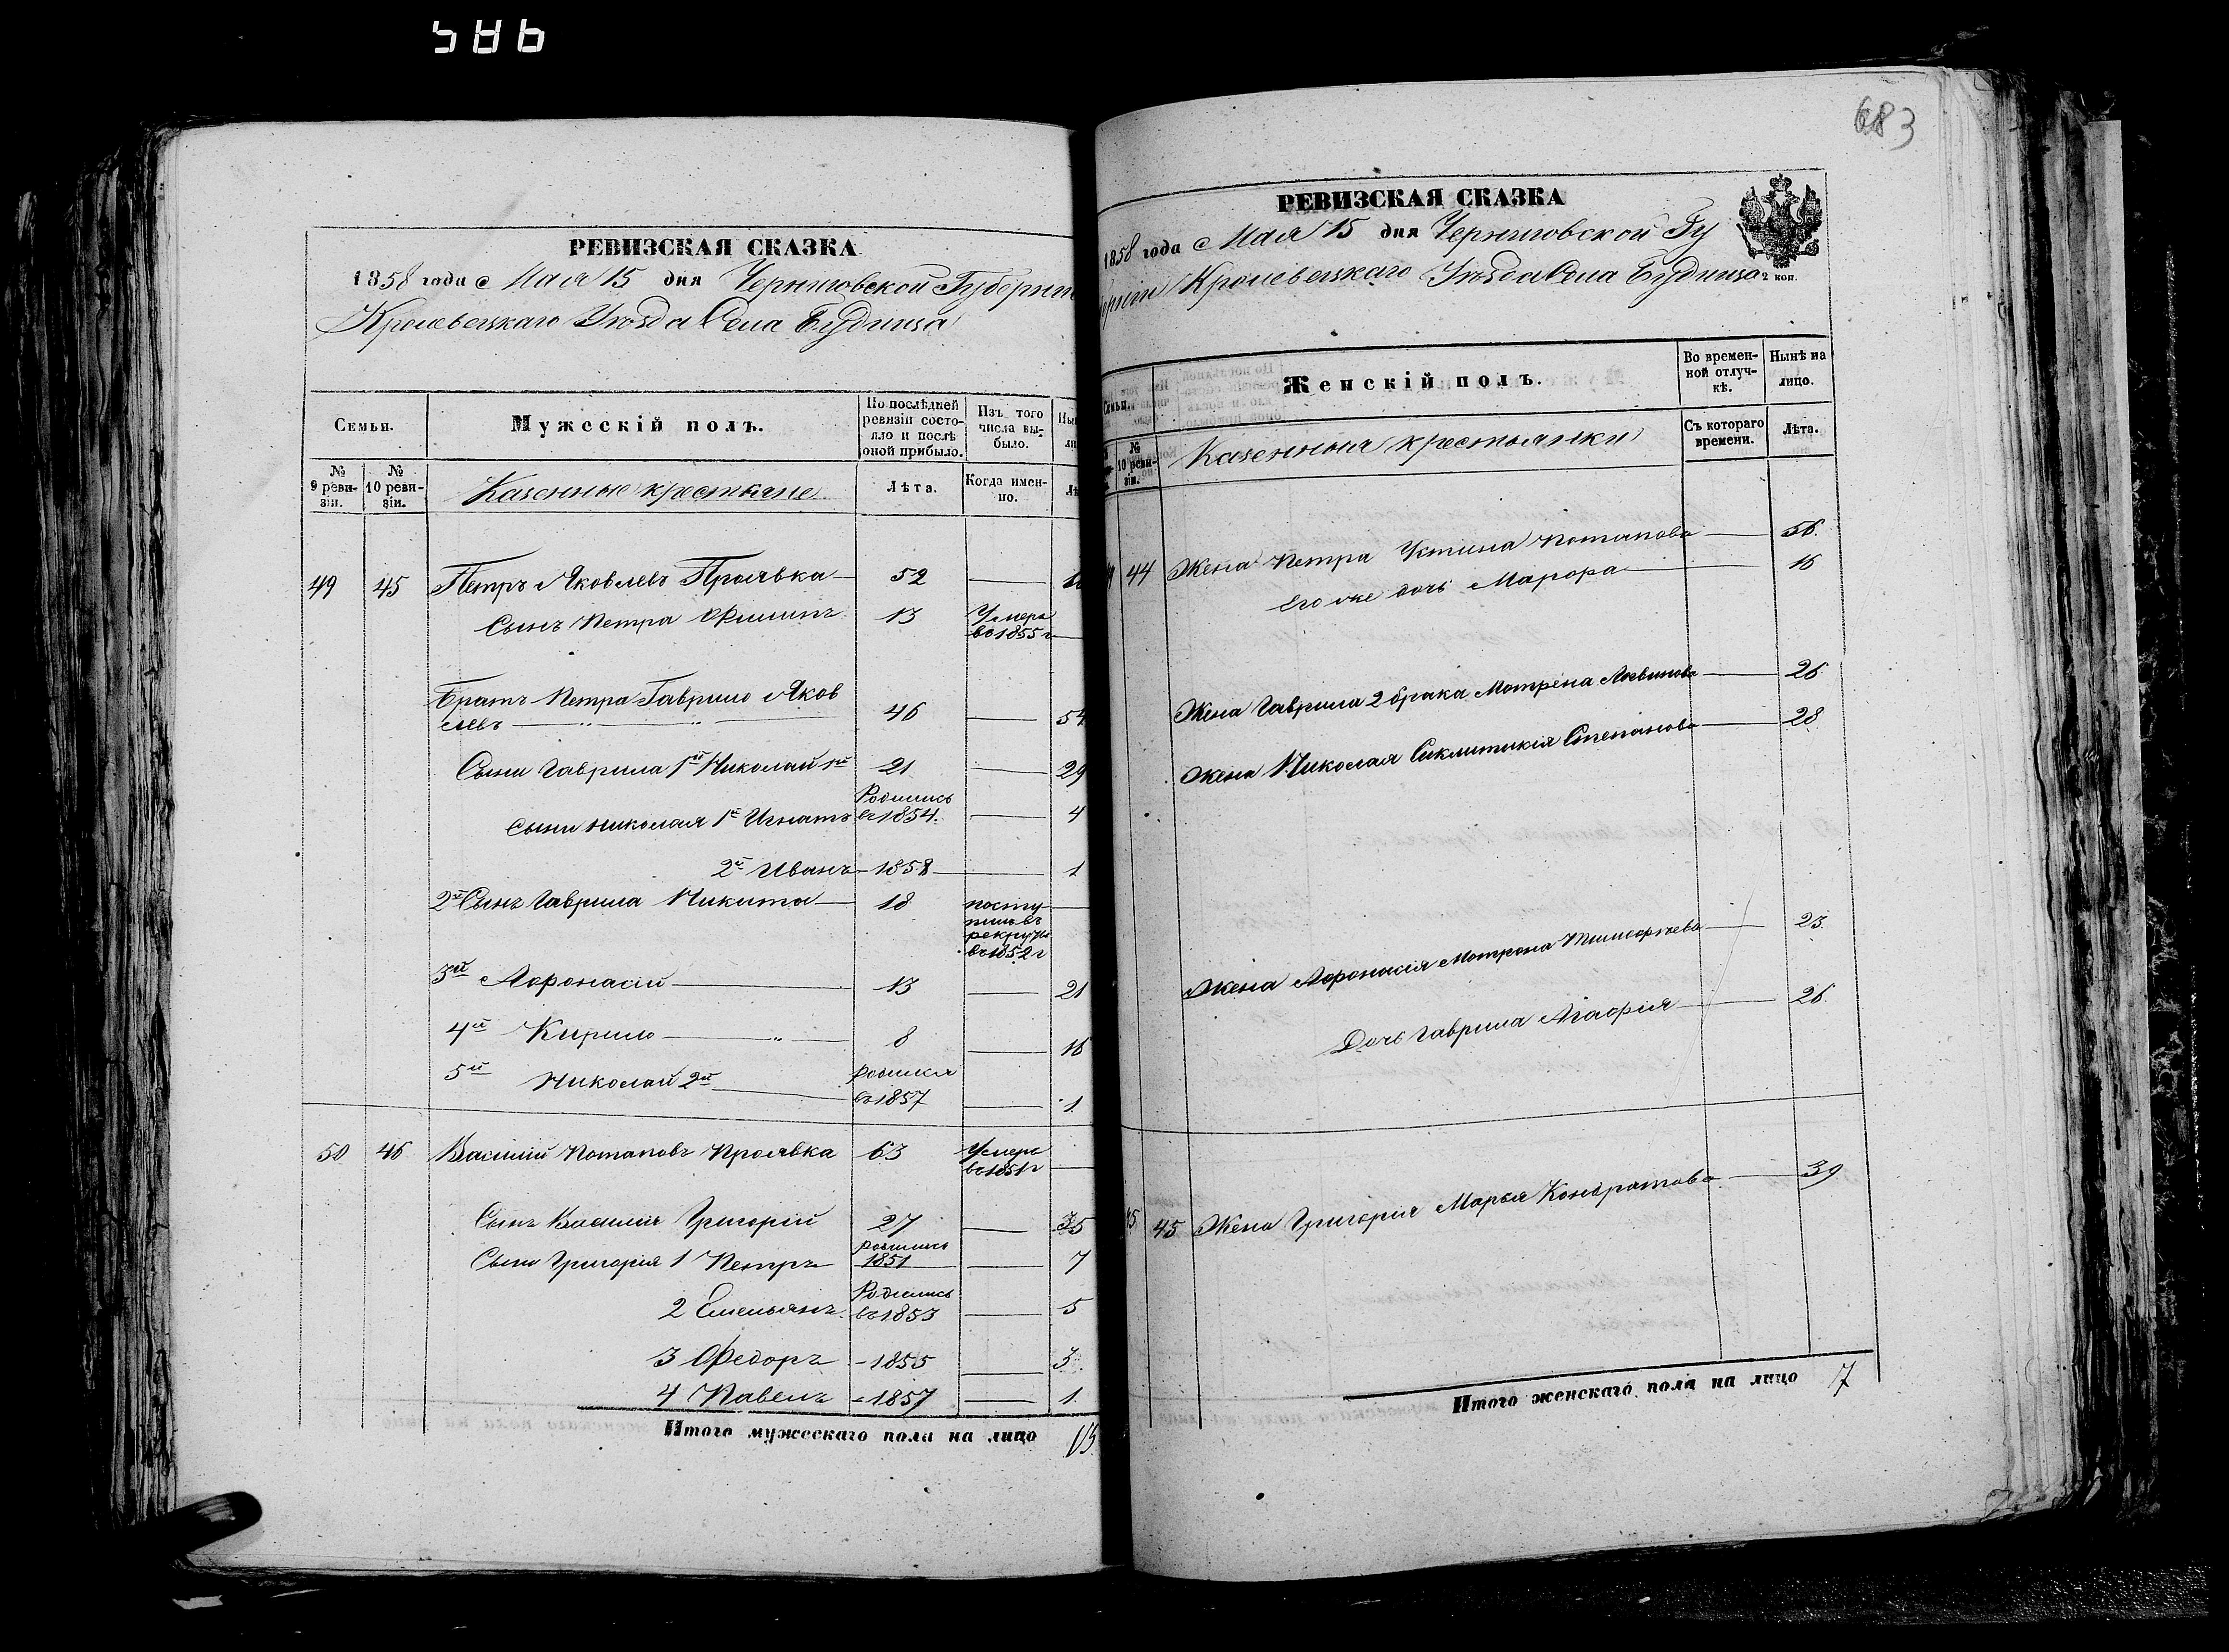 586
683
РЕВИЗСКАЯ СКАЗКА
1858 года Мая 15 дня Черниговской Губерніи
Кролевецкаго Уѣзда Села Будища
Семьи.
Мужескій полъ.
По послѣдней ревизіи состояло и послѣ оной прибыло.
Изъ того числа выбыло.
№ 9 ревизіи.
№ 10 ревизіи.
Казенные крестьяне
Лѣта.
Когда именно.
49 45 Петръ Яковлевъ Проявка 52
Сынъ Петра Филипъ 13 Умеръ въ 1855 г
Братъ Петра Гаврило Яков
левъ 46 54
Сыны Гаврила 1й Николай 1й 21 29
Сыны Николая 1й Игнатъ Родились въ 1854. 4
2й Иванъ - 1858 1
2й Сынъ Гаврила Никита 18 поступилъ въ рекруты въ 1852 г
3й Афонасій 13 21
4й Кирило 8 16
5й Николай 2й родился въ 1857 1
50 46 Василий Потаповъ Проявка 63 Умеръ въ 1851 г
Сынъ Василия Григорій 27 35
Сыны Григорія 1 Петръ родились 1851 7
2 Емельянъ Родились въ 1853 5
3 Федоръ - 1855 3
4 Павелъ - 1857 1
Итого мужескаго пола на лицо 13
РЕВИЗСКАЯ СКАЗКА
1858 года Мая 15 дня Черниговской Гу
берніи Кролевецкаго Уѣзда Села Будища
2 коп.
Женскій полъ.
Во временной отлучкѣ.
Нынѣ на лицо.
№ 10 ревизіи.
Казенныя крестьянки
Съ котораго времени.
Лѣта.
44 Жена Петра Устина Потапова 56
Его же дочь Марфа 16
Жена Гаврила 2 брака Мотрена Логвинова 26
Жена Николая Сиклитикія Степанова 28
Жена Афонасія Мотрона Тимофѣева 23
Дочь Гаврила Агафія 26
45 Жена Григорія Марья Кондратова 39
Итого женскаго пола на лицо 7